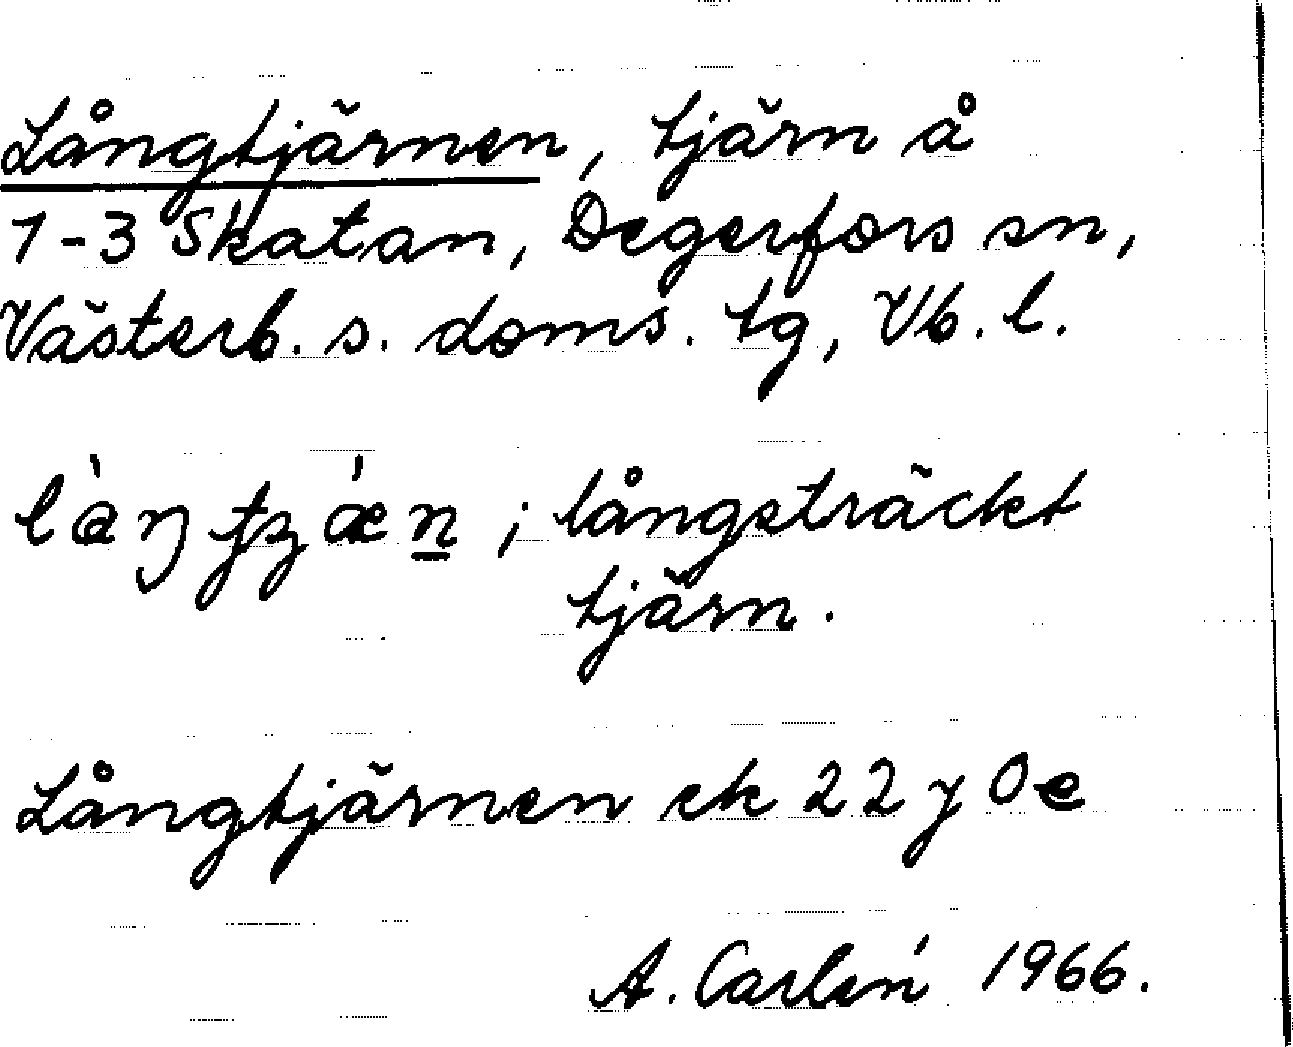 Långtjärnen, tjärn å
1-3 Skatan, Degerfors sn,
Västerb. s. doms. tg, Vb. l.
långsträckt
tjärn.
Långtjärnen ek 22 y 0e
A. Carlén 1966.